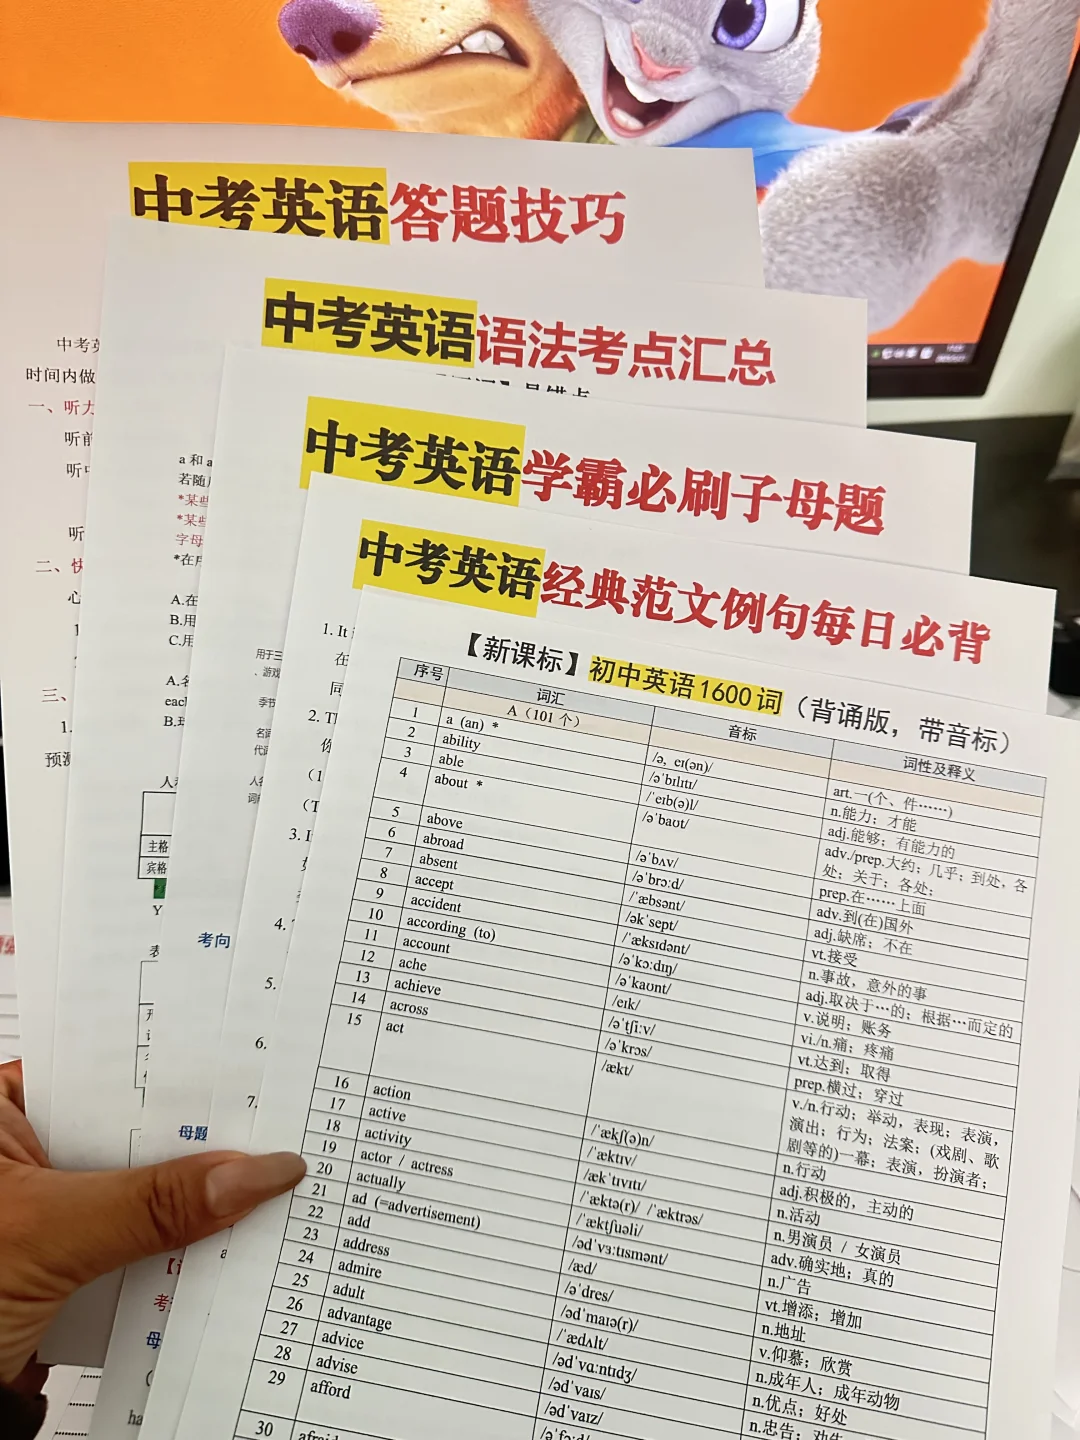 中考英语答题技巧
中考英
时间内做
一、听力
听前
听中
听
二、快
心
三、
1.
预测
中考英语语法考点汇总
a 和 a
若随
*某些
*某些
字母
*在序
A.在
B.用
C.用
A.名
each
B.环
主格
宾格
Y
表
中考英语学霸必刷子母题
用于三
、游戏
季节
名词
代词
人名
词
考向
母题
中考英语经典范文例句每日必背
1. It i
在
同
2. Th
你
(1
(T
3. I
4.
5.
6.
7.
【新课标】初中英语1600词（背诵版，带音标）
序号 词汇 音标 词性及释义
A（101 个）
1 a (an) * /ə, eɪ(ən)/ art.一(个、件……)
2 ability /əˈbɪlɪtɪ/ n.能力；才能
3 able /ˈeɪb(ə)l/ adj.能够；有能力的
4 about * /əˈbaʊt/ adv./prep.大约；几乎；到处，各
处；关于；各处；
5 above /əˈbʌv/ prep.在……上面
6 abroad /əˈbrɔːd/ adv.到(在)国外
7 absent /ˈæbsənt/ adj.缺席；不在
8 accept /əkˈsept/ vt.接受
9 accident /ˈæksɪdənt/ n.事故，意外的事
10 according (to) /əˈkɔːdɪŋ/ adj.取决于…的；根据…而定的
11 account /əˈkaʊnt/ v.说明；账务
12 ache /eɪk/ vi./n.痛；疼痛
13 achieve /əˈtʃiːv/ vt.达到；取得
14 across /əˈkrɒs/ prep.横过；穿过
15 act /ækt/ v./n.行动；举动，表现；表演，
演出；行为；法案；(戏剧、歌
剧等的)一幕；表演，扮演者；
16 action /ˈækʃ(ə)n/ n.行动
17 active /ˈæktɪv/ adj.积极的，主动的
18 activity /ækˈtɪvɪtɪ/ n.活动
19 actor / actress /ˈæktə(r)/ /ˈæktrəs/ n.男演员 / 女演员
20 actually /ˈæktʃuəli/ adv.确实地；真的
21 ad (=advertisement) /ədˈvɜːtɪsmənt/ n.广告
22 add /æd/ vt.增添；增加
23 address /əˈdres/ n.地址
24 admire /ədˈmaɪə(r)/ v.仰慕；欣赏
25 adult /ˈædʌlt/ n.成年人；成年动物
26 advantage /ədˈvɑːntɪdʒ/ n.优点；好处
27 advice /ədˈvaɪs/ n.忠告；劝告
28 advise /ədˈvaɪz/
29 afford
30 afraid